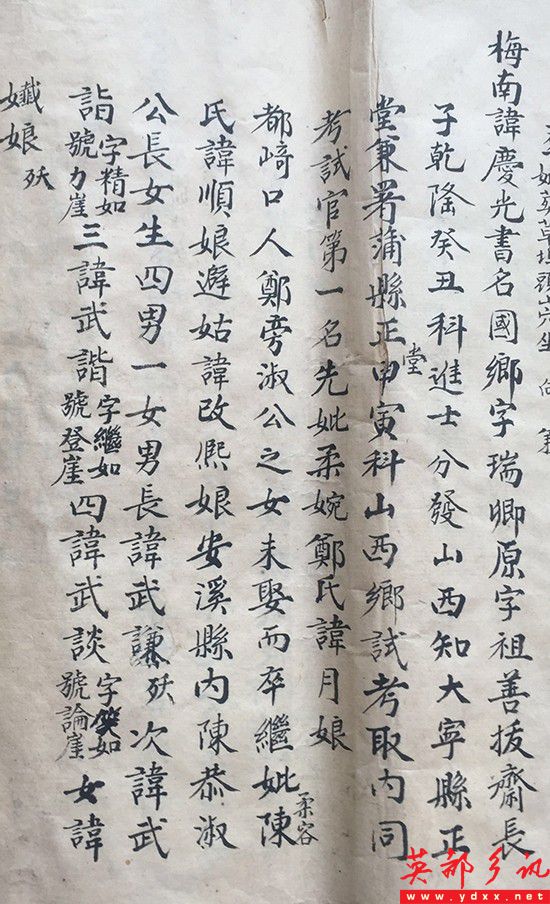 葬草埔頭山穴坐 向
梅南諱慶光書名國鄉字瑞卿原字祖善拔齋長
子乾隆癸丑科進士分發山西知大寧縣正
堂兼署蒲縣正堂甲寅科山西鄉試考取內同
考試官第一名先妣柔婉鄭氏諱月娘
都崎口人鄭旁淑公之女未娶而卒繼妣柔容陳
氏諱順娘避姑諱改熈娘安溪縣內陳恭淑
公長女生四男一女男長諱武謙殀次諱武
詣字精如號力崖三諱武諧字繼如號登崖四諱武談字笑如號論崖女諱
孅娘殀
英都乡讯
www.ydxx.net